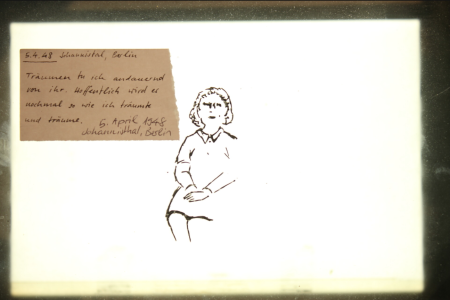 6.4.48 Johannisthal, Berlin
Träumen tu ich andauernd
von ihr. Hoffentlich wird es
nochmal so wie ich träumte
und träume. 6. April 1948
Johannisthal, Berlin